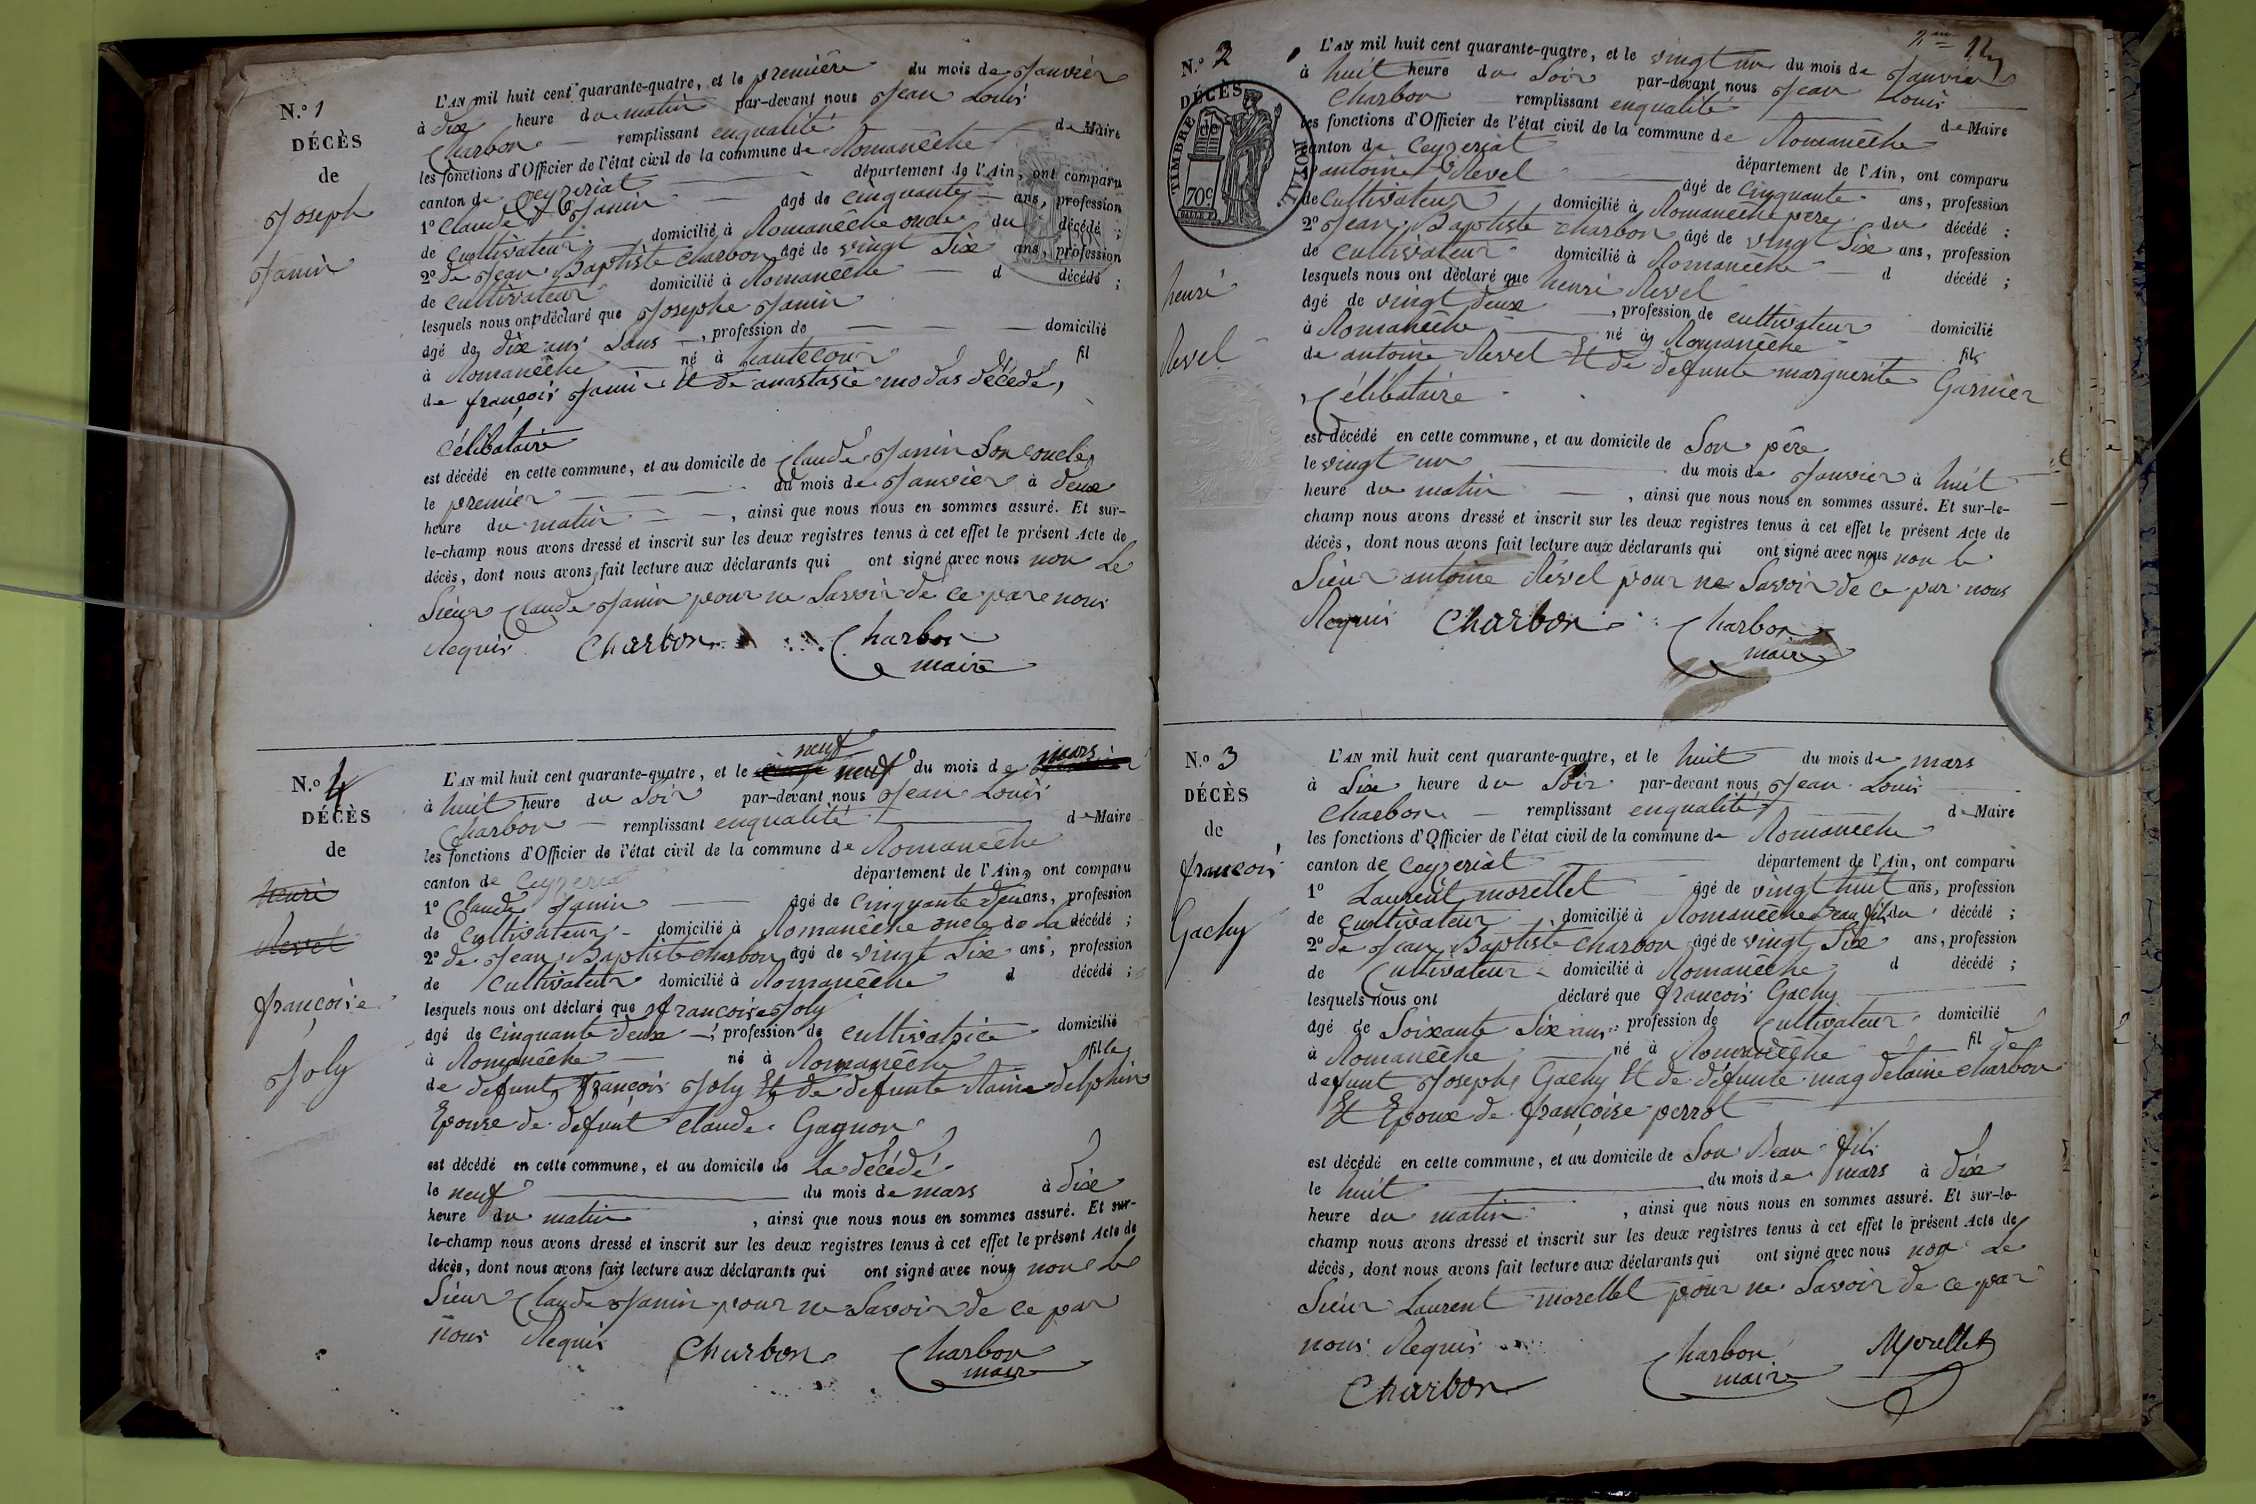 N.º 1
DÉCÈS
de
Joseph
Janin
L'AN mil huit cent quarante-quatre, et le première du mois de Janvier
à dix heure du matin par-devant nous Jean Louis
Charbon remplissant enqualité de Maire
les fonctions d'Officier de l'état civil de la commune de Romanêche
canton de Ceyzeriat département de l'Ain, ont comparu
1º Claude Janin âgé de cinquante ans, profession
de cultivateur domicilié à Romanêche oncle du décédé ;
2º de Jean Baptiste Charbon âgé de vingt Six ans, profession
de cultivateur domicilié à Romanêche d décédé ;
lesquels nous ont déclaré que Josephe Janin
âgé de dix ans Sans , profession de domicilié
à Romanêche né à hautecour fil
de françois Janin Et de anastasie modas décédé,
célibataire
est décédé en cette commune, et au domicile de Claude Janin Son oncle
le premier du mois de Janvier à deux
heure du matin , ainsi que nous nous en sommes assuré. Et sur-
le-champ nous avons dressé et inscrit sur les deux registres tenus à cet effet le présent Acte de
décès, dont nous avons fait lecture aux déclarants qui ont signé avec nous non Le
Sieur Claude Janin pour ne Savoir de ce par nous
Requis Charbon Charbon
maire
N.º 4
DÉCÈS
de
henri
Revel
françoise
Joly
neuf mars
L'AN mil huit cent quarante-quatre, et le neuf du mois de
à huit heure du Soir par-devant nous Jean Louis
Charbon remplissant enqualité de Maire
les fonctions d'Officier de l'état civil de la commune de Romanêche
canton de Ceyzeriat département de l'Ain, ont comparu
1º Claude Janin âgé de cinquante deux ans, profession
de cultivateur domicilié à Romanêche oncle de la décédé ;
2º de Jean Baptiste Charbon âgé de vingt Six ans, profession
de cultivateur domicilié à Romanêche d décédé ;
lesquels nous ont déclaré que françoise Joly
âgé de cinquante deux , profession de cultivatrice domicilié
à Romanêche né à Romanêche fille
de defunt françois Joly Et de defunte Raine delphin
Epouse de defunt Claude Gagnon
est décédé en cette commune, et au domicile de La décédé
le neuf du mois de mars à dix
heure du matin , ainsi que nous nous en sommes assuré. Et sur-
le-champ nous avons dressé et inscrit sur les deux registres tenus à cet effet le présent Acte de
décès, dont nous avons fait lecture aux déclarants qui ont signé avec nous non Le
Sieur Claude Janin pour ne Savoir de ce par
nous Requis Charbon Charbon
maire
N.º 2
DÉCÈS
TIMBRE ROYAL
70c
henri
Revel
L'AN mil huit cent quarante-quatre, et le vingt un du mois de Janvier
à huit heure du Soir par-devant nous Jean Louis
Charbon remplissant enqualité de Maire
les fonctions d'Officier de l'état civil de la commune de Romanêche
canton de Ceyzeriat département de l'Ain, ont comparu
antoine Revel âgé de cinquante ans, profession
de cultivateur domicilié à Romanêche père du décédé ;
2º Jean Baptiste Charbon âgé de vingt Six ans, profession
de cultivateur domicilié à Romanêche d décédé ;
lesquels nous ont déclaré que henri Revel
âgé de vingt deux , profession de cultivateur domicilié
à Romanêche né à Romanêche fils
de antoine Revel Et de defunte marguerite Garnier
Célibataire
est décédé en cette commune, et au domicile de Son père
le vingt un du mois de Janvier à huit
heure du matin , ainsi que nous nous en sommes assuré. Et sur-le-
champ nous avons dressé et inscrit sur les deux registres tenus à cet effet le présent Acte de
décès, dont nous avons fait lecture aux déclarants qui ont signé avec nous non le
Sieur antoine Revel pour ne Savoir de ce par nous
Requis Charbon Charbon
maire
N.º 3
DÉCÈS
de
françois
Gachy
L'AN mil huit cent quarante-quatre, et le huit du mois de mars
à Six heure du Soir par-devant nous Jean Louis
Charbon remplissant enqualité de Maire
les fonctions d'Officier de l'état civil de la commune de Romanêche
canton de Ceyzeriat département de l'Ain, ont comparu
1º Laurent morellet âgé de vingt huit ans, profession
de cultivateur domicilié à Romanêche Beau fils du décédé ;
2º de Jean Baptiste Charbon âgé de vingt Six ans, profession
de Cultivateur domicilié à Romanêche d décédé ;
lesquels nous ont déclaré que françois Gachy
âgé de Soixante Six ans profession de Cultivateur domicilié
à Romanêche né à Romanêche fil de
defunt Joseph Gachy Et de défunte magdelaine Charbon
Et Epoux de françoise perrot
est décédé en cette commune, et au domicile de Son Beau fils
le huit du mois de mars à dix
heure du matin , ainsi que nous nous en sommes assuré. Et sur-le-
champ nous avons dressé et inscrit sur les deux registres tenus à cet effet le présent Acte de
décès, dont nous avons fait lecture aux déclarants qui ont signé avec nous non Le
Sieur Laurent morellet pour ne Savoir de ce par
nous Requis Charbon Morellet
Charbon maire